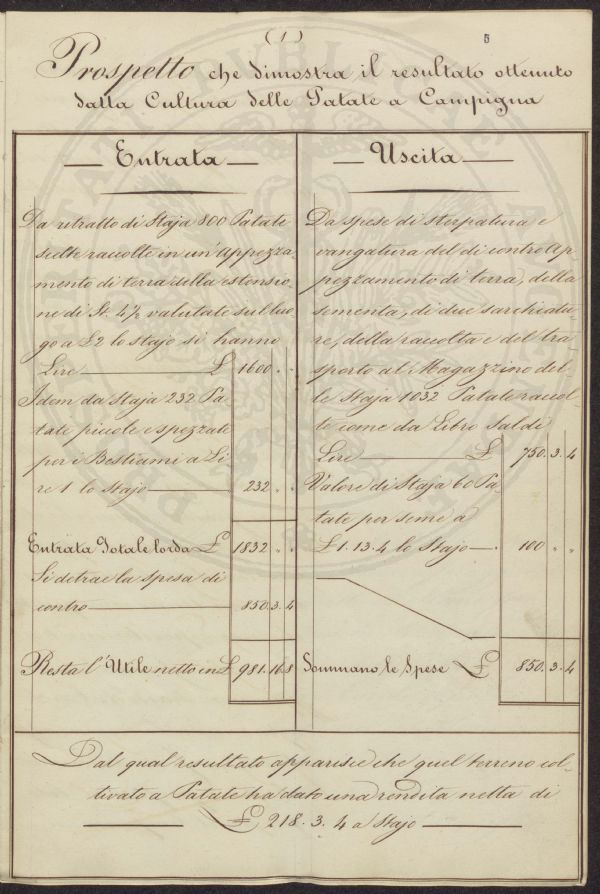 (1)
5
Prospetto che dimostra il resultato ottenuto
dalla Cultura delle Patate a Campigna
— Entrata —
Da retratto di Staja 800 Patate
scelte raccolte in un'appezza-
mento di terra della estensio-
ne di St. 4½ valutate sul luo-
go a £2 lo stajo si hanno
Lire — £ 1600 " "
Idem da Staja 232 Pa-
tate piccole e spezzate
per i Bestiami a Li-
re 1 lo stajo — 232 " "
Entrata Totale lorda £ 1832 " "
Si detrae la spesa di
contro — 850.3.4
Resta l'Utile netto in £ 981.16.8
— Uscita —
Da spese di sterpatura e
vangatura del di contro Ap-
pezzamento di terra, della
sementa, di due sarchiatu-
re, della raccolta e del tra-
sporto al Magazzino del-
le Staja 1032 Patate raccol-
te come da Libro Saldi
Lire — £ 750.3.4
Valore di Staja 60 Pa-
tate per seme a
£1.13.4 lo Stajo — 100 " "
Sommano le Spese £ 850.3.4
Dal qual resultato apparisce che quel terreno col-
tivato a Patate ha dato una rendita netta di
— £ 218.3.4 a Stajo —